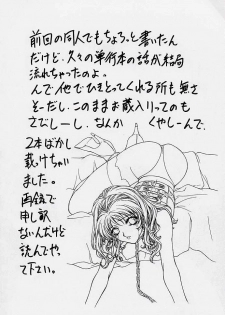 前回の同人でもちょろっと書いたん
だけど、久々の単行本の話が結局
流れちゃったのよ。
んで他でひきとってくれる所も無さ
そーだし、このままお蔵入りってのも
さびしーし、なんか くやしーんで、
2本ばかし
載けちゃい
ました。
再録で
申し訳
ないんだけど
読んでやっ
て下さい。